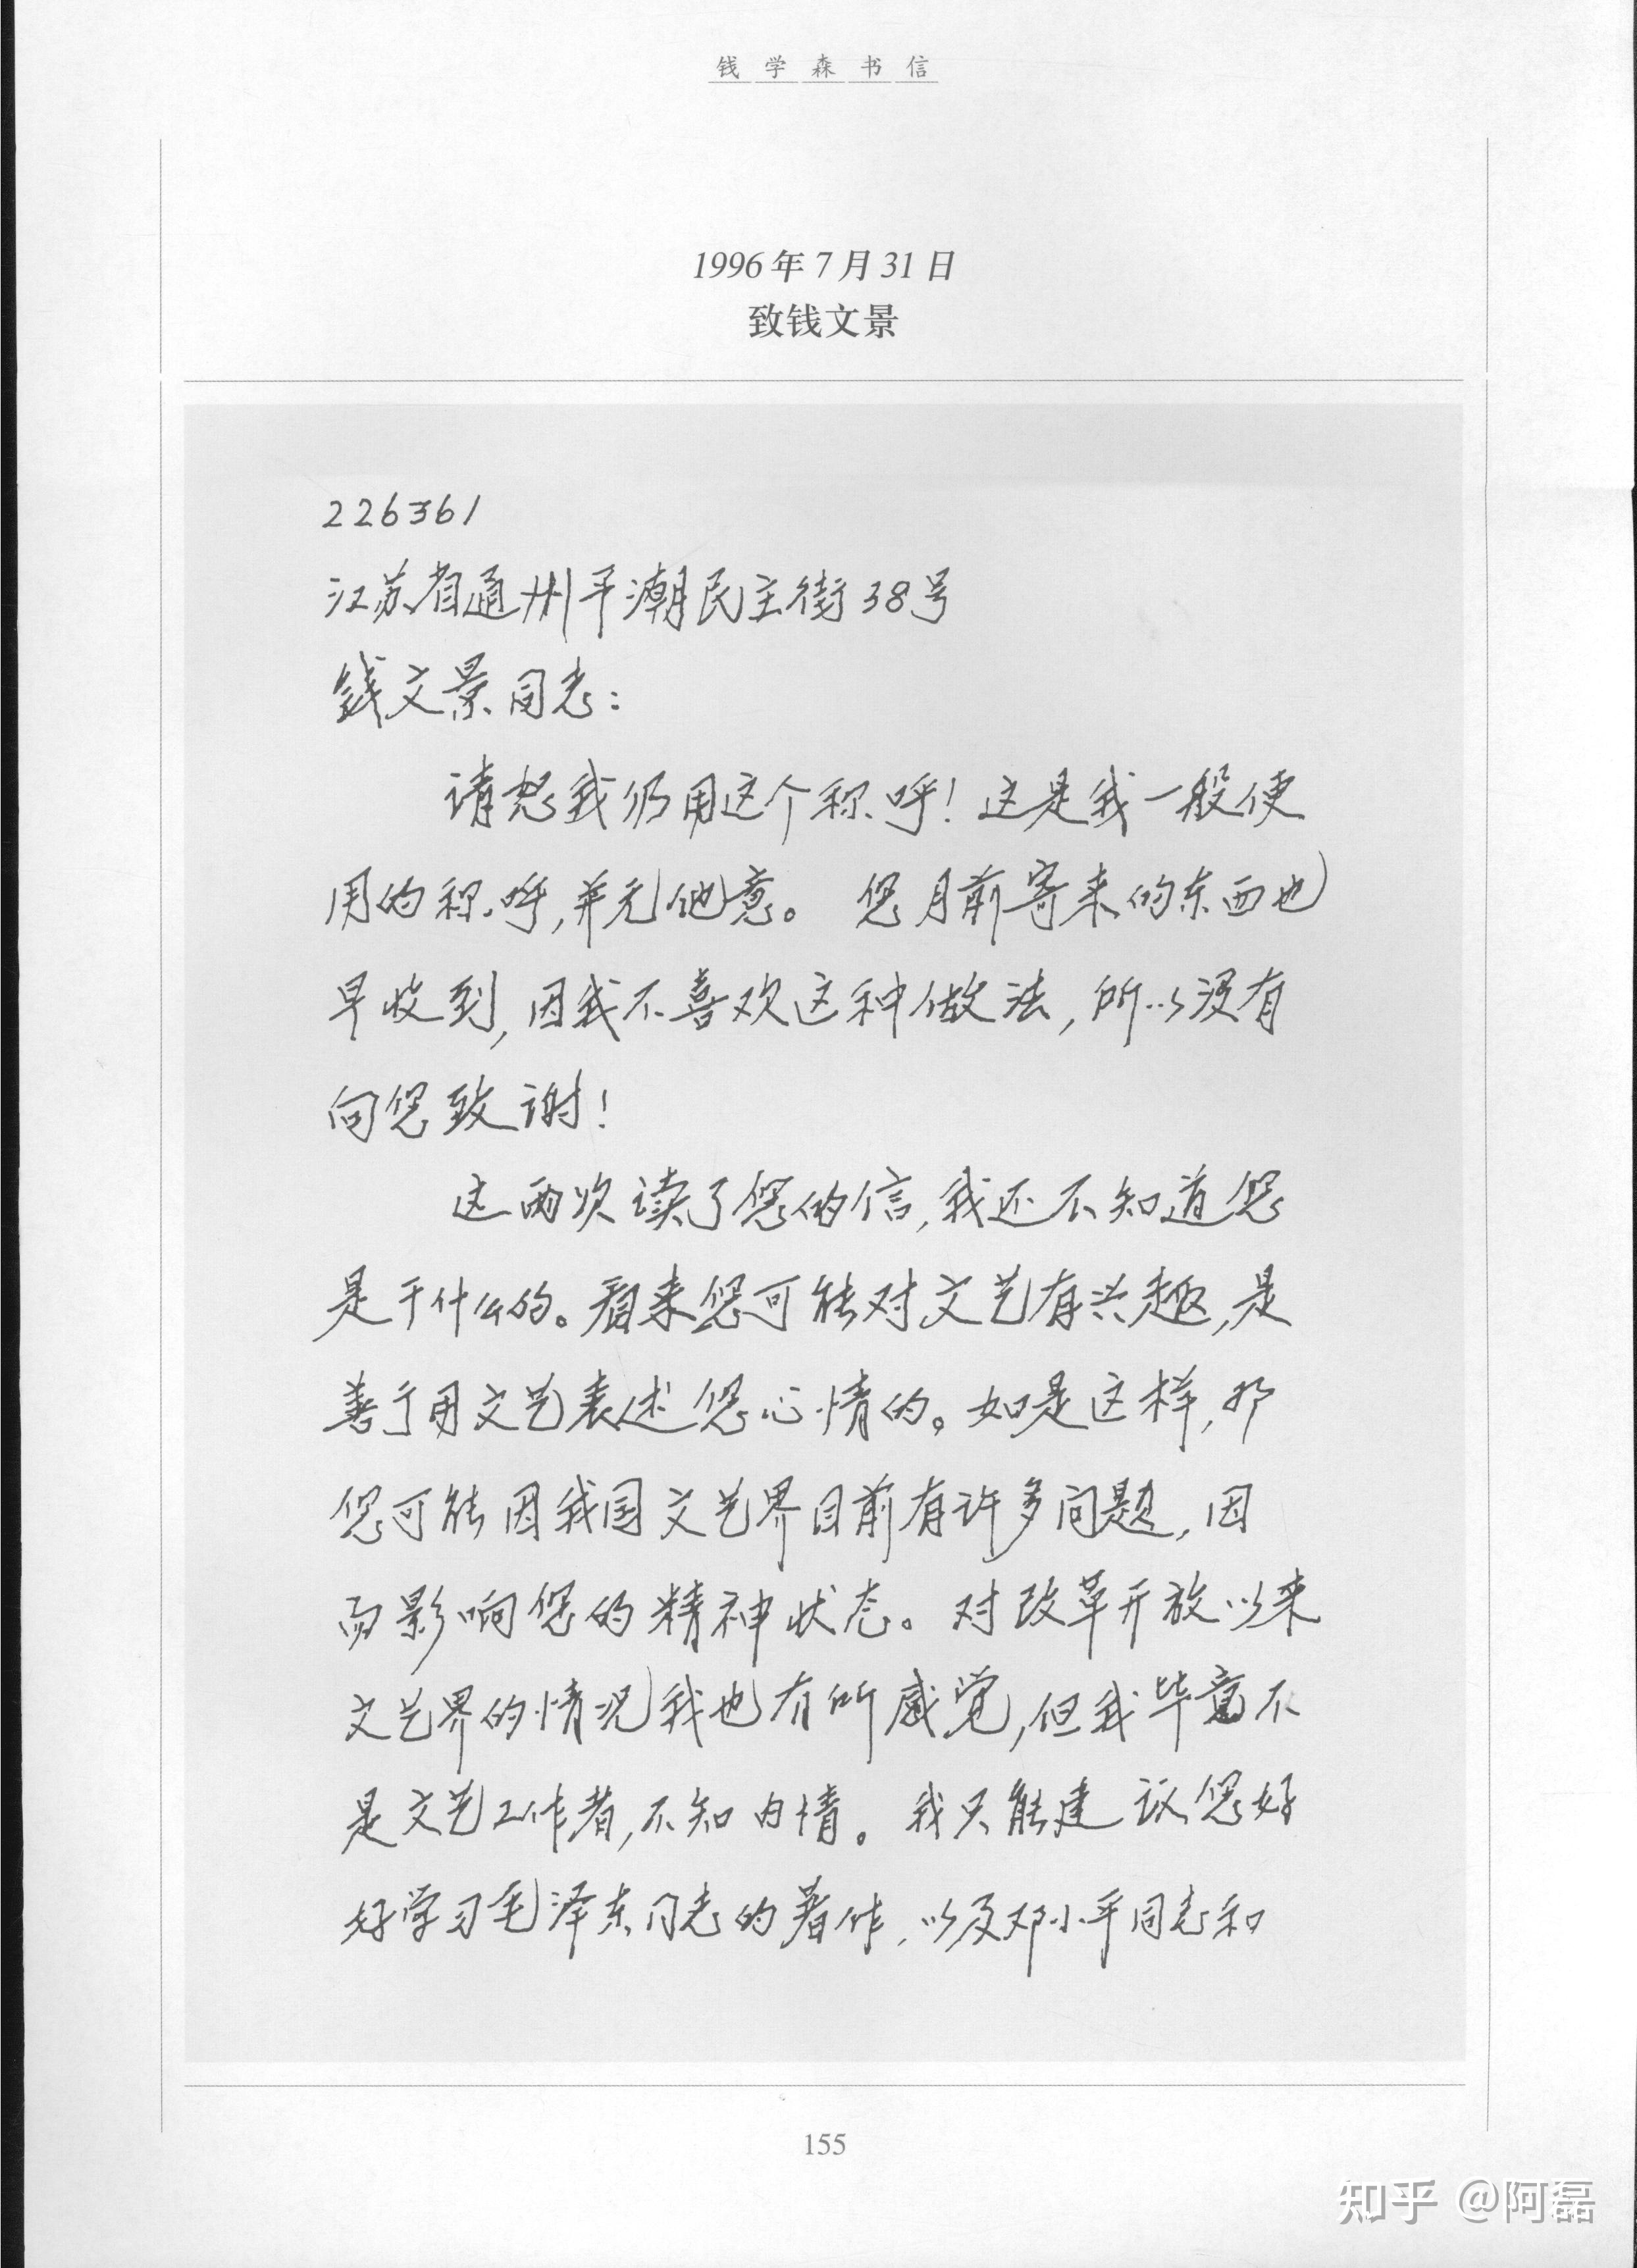 钱学森书信
1996年7月31日
致钱文景
226361
江苏省通州平潮民主街38号
钱文景同志:
请恕我仍用这个称呼!这是我一般使
用的称呼,并无他意。您月前寄来的东西也
早收到,因我不喜欢这种做法,所以没有
向您致谢!
这两次读了您的信,我还不知道您
是干什么的。看来您可能对文艺有兴趣,是
善于用文艺表述您心情的。如是这样,那
您可能因我国文艺界目前有许多问题,因
而影响您的精神状态。对改革开放以来
文艺界的情况我也有所感觉,但我毕竟不
是文艺工作者,不知内情。我只能建议您好
好学习毛泽东同志的著作,以及邓小平同志和
155
知乎 @阿磊